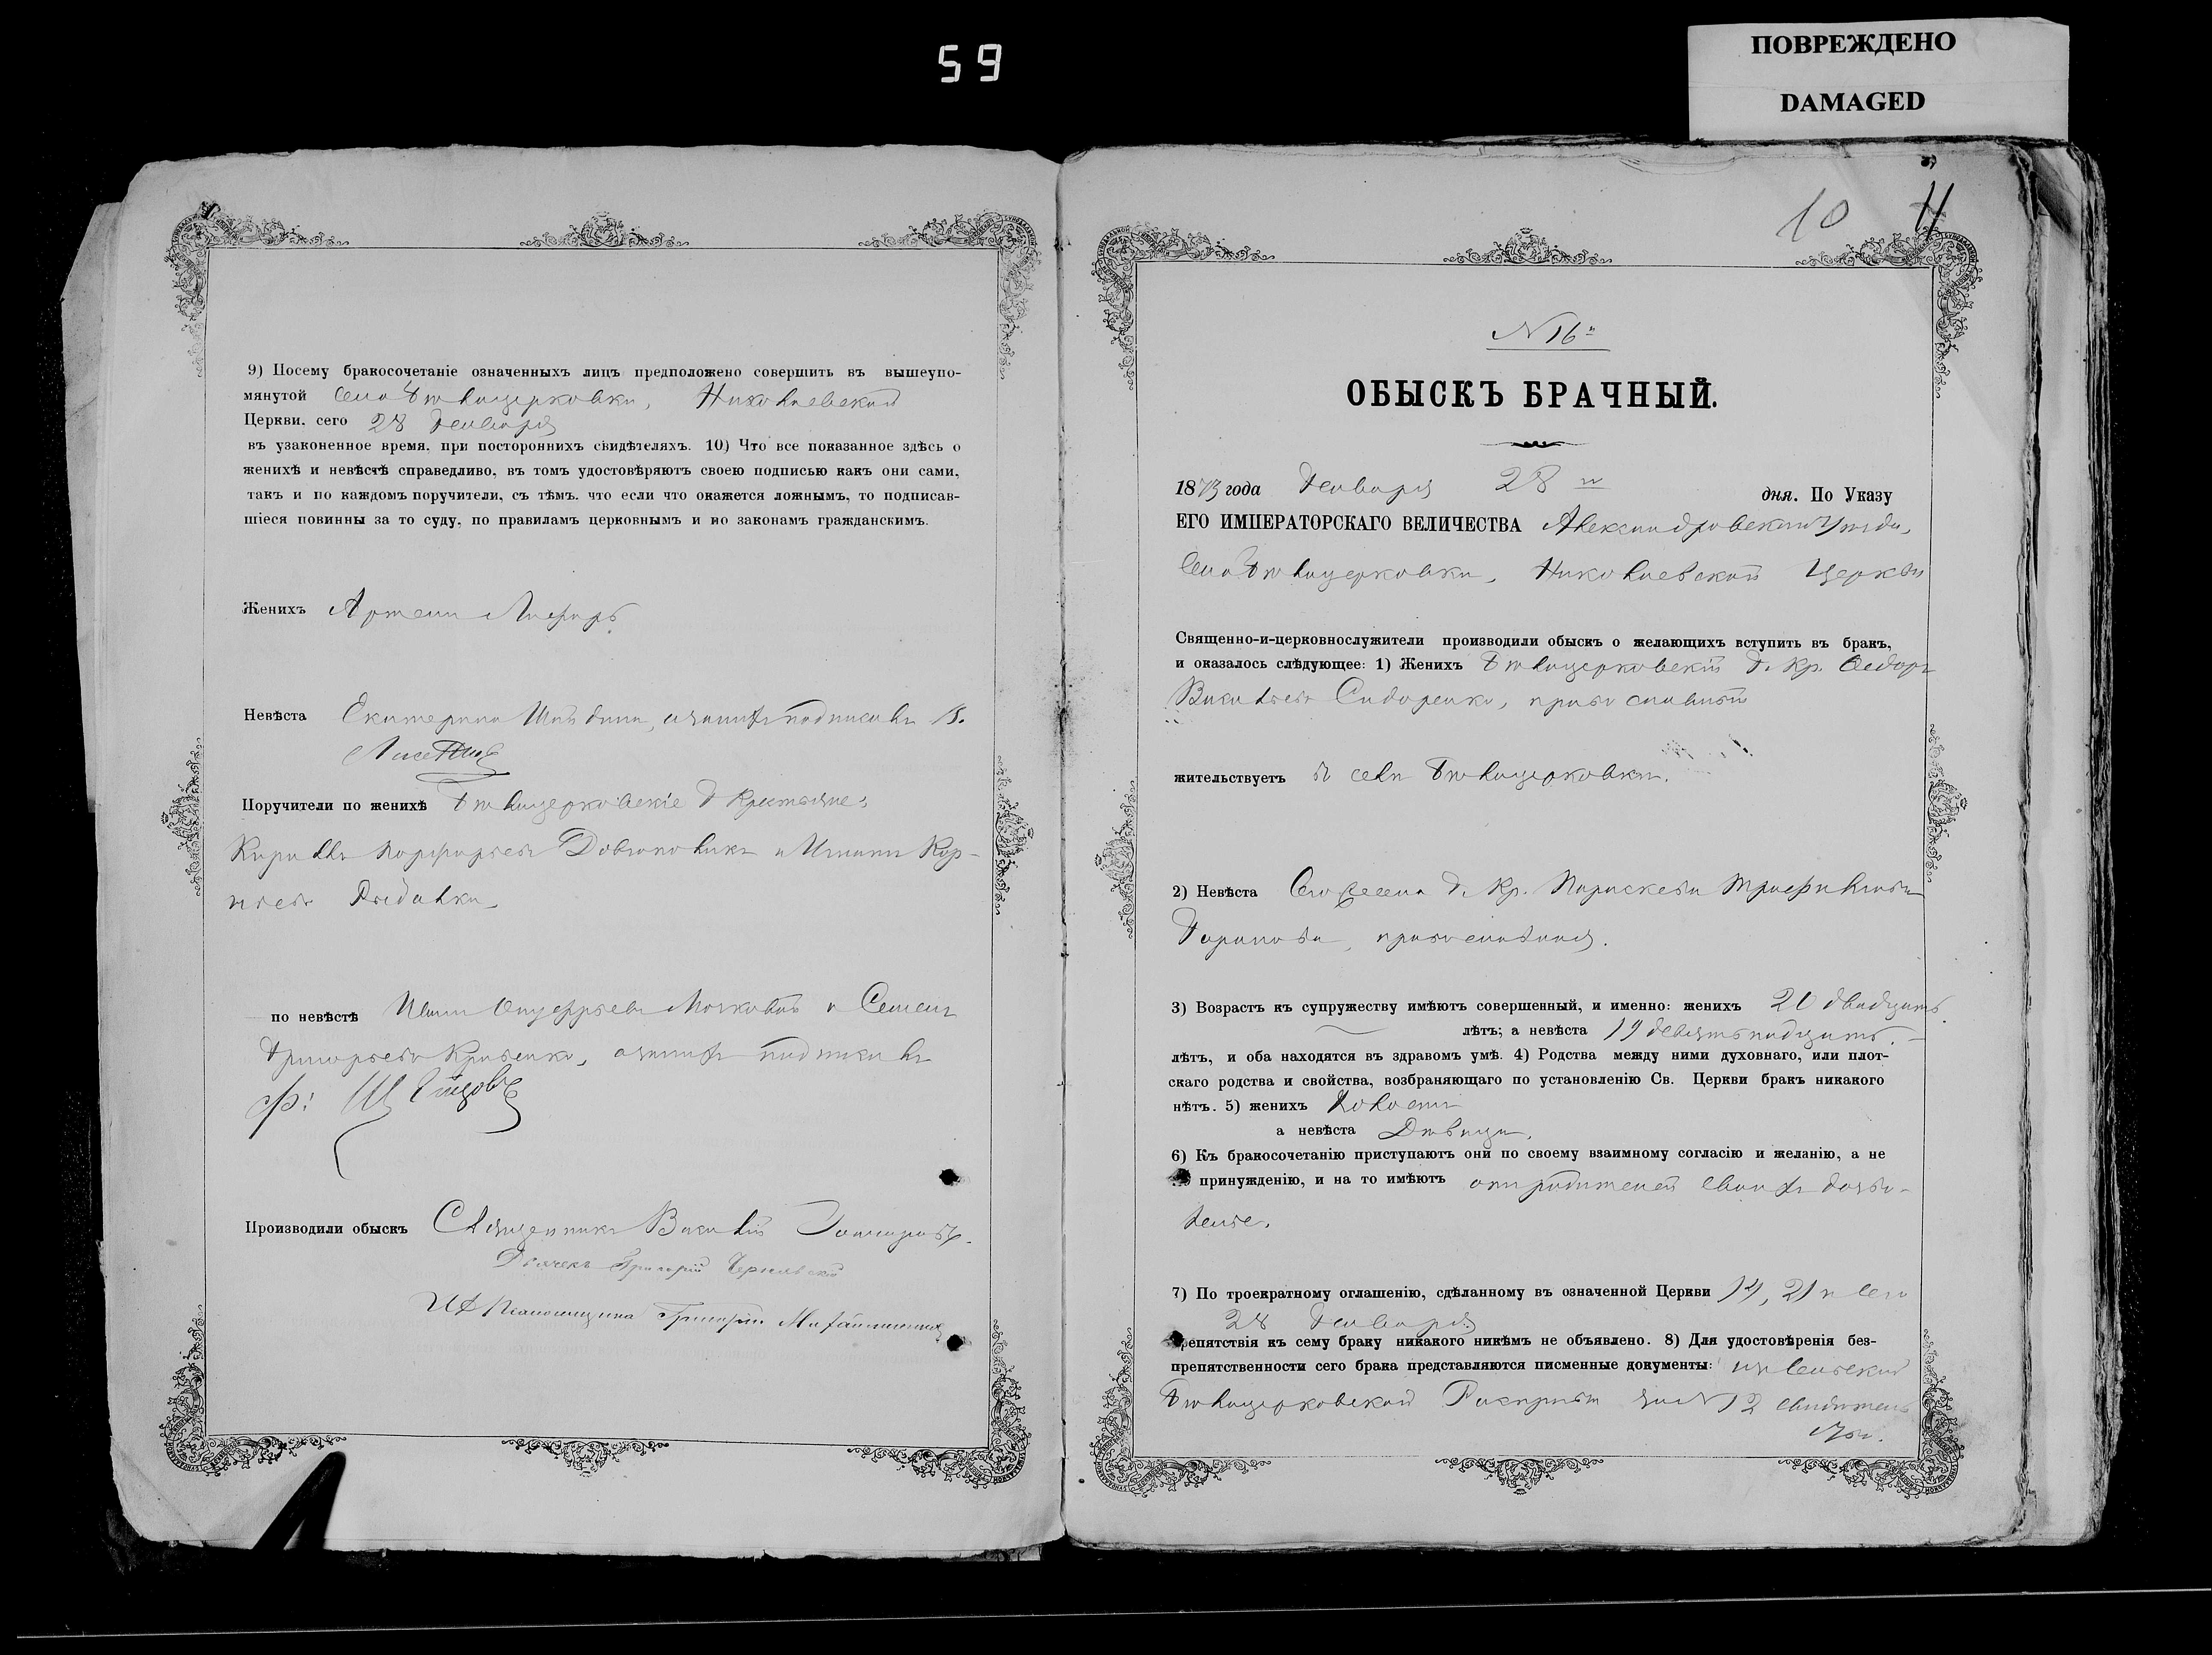 59
ПОВРЕЖДЕНО
DAMAGED
9) Посему бракосочетаніе означенныхъ лицъ предположено совершить въ вышеупо-
мянутой села Бѣлоцерковки, Николаевской
Церкви, сего 28 Генваря
въ узаконенное время, при постороннихъ свидѣтеляхъ. 10) Что все показанное здѣсь о
женихѣ и невѣстѣ справедливо, въ томъ удостовѣряютъ своею подписью какъ они сами,
такъ и по каждомъ поручители, съ тѣмъ, что если что окажется ложнымъ, то подписав-
шіеся повинны за то суду, по правиламъ церковнымъ и по законамъ гражданскимъ.
Женихъ Артемъ
Невѣста Екатерина подписалъ
Поручители по женихѣ Бѣлоцерковскіе Г. Крестьяне:
Кириллъ Порфирьевъ и Игнатъ Кор-
нѣевъ
по невѣстѣ Иванъ и Семенъ
Григорьевъ Кривенко, подписалъ
Производили обыскъ Священникъ Василій Гончаровъ.
Дьячекъ Григорій Чернявскій
И Д Пономаря Григорій
10 11
N 16й
ОБЫСКЪ БРАЧНЫЙ.
1873 года Генваря 28 го дня. По Указу
ЕГО ИМПЕРАТОРСКАГО ВЕЛИЧЕСТВА Александровскаго Уѣзда,
села Бѣлоцерковки, Николаевской Церкви
Священно-и-церковнослужители производили обыскъ о желающихъ вступить въ бракъ,
и оказалось слѣдующее: 1) Женихъ Бѣлоцерковскій Г. Кр. Ѳедоръ
Васильевъ Сидоренко, православный
жительствуетъ въ селѣ Бѣлоцерковкѣ.
2) Невѣста Сего села Г. Кр. Параскева Трофимова
Гаранова, православная.
3) Возрастъ къ супружеству имѣютъ совершенный, и именно: женихъ 20 двадцать
лѣтъ; а невѣста 19 девятьнадцать.
лѣтъ, и оба находятся въ здравомъ умѣ. 4) Родства между ними духовнаго, или плот-
скаго родства и свойства, возбраняющаго по установленію Св. Церкви бракъ никакого
нѣтъ. 5) женихъ Холостъ
а невѣста Дѣвица.
6) Къ бракосочетанію приступаютъ они по своему взаимному согласію и желанію, а не
принужденію, и на то имѣютъ отъ родителей своихъ дозво-
леніе.
7) По троекратному оглашенію, сдѣланному въ означенной Церкви 14, 21 и сего
28 Генваря
препятствія къ сему браку никакого никѣмъ не объявлено. 8) Для удостовѣренія без-
препятственности сего брака представляются писменные документы: изъ Сельской
Бѣлоцерковской Расправы за N 12 свидѣтель
ство.